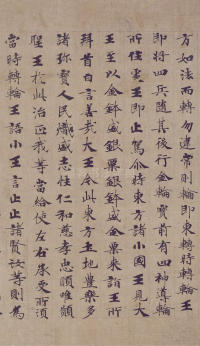 方如法而轉勿違常則輪即東轉時轉輪王
即將四兵隨其後行金輪寶前有四神導輪
所住處王即止駕尒時東方諸小國王見大
王至以金鉢盛銀粟銀鉢盛金粟來詣王所
拜首白言善哉大王今此東方土地豐樂多
諸珍寶人民熾盛志性仁和慈孝忠順唯願
聖王於此治正我等當給使左右承受所須
當時轉輪王語小王言止止諸賢汝等則為